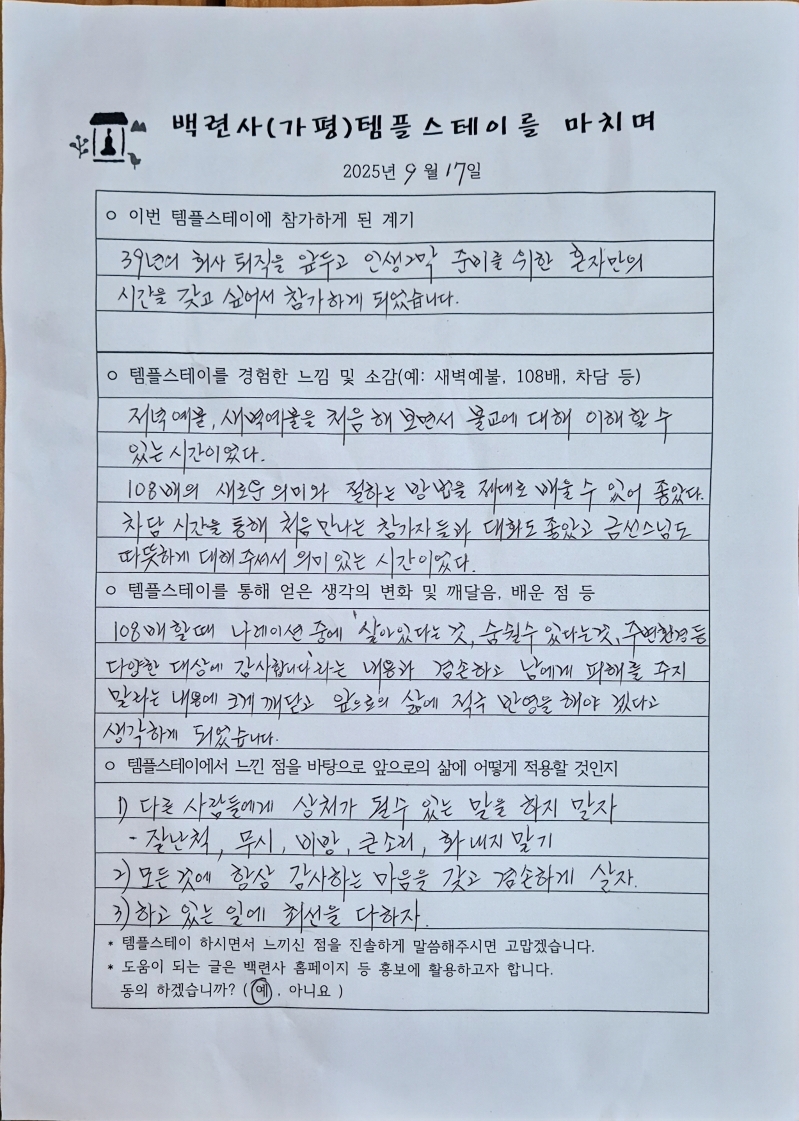 백련사(가평)템플스테이를 마치며
2025년 9월 17일
ㅇ 이번 템플스테이에 참가하게 된 계기
39년의 회사 퇴직을 앞두고 인생2막 준비를 위한 혼자만의
시간을 갖고 싶어서 참가하게 되었습니다.
ㅇ 템플스테이를 경험한 느낌 및 소감(예: 새벽예불, 108배, 차담 등)
저녁예불, 새벽예불을 처음 해 보면서 불교에 대해 이해할 수
있는 시간이었다.
108배의 새로운 의미와 절하는 방법을 제대로 배울 수 있어 좋았다.
차담 시간을 통해 처음 만나는 참가자들과 대화도 좋았고 금선스님도
따뜻하게 대해 주셔서 의미 있는 시간이었다.
ㅇ 템플스테이를 통해 얻은 생각의 변화 및 깨달음, 배운 점 등
108배 할때 나레이션 중에 '살아있다는 것, 숨쉴수 있다는것, 주변환경등
다양한 대상에 감사합니다'라는 내용과 겸손하고 남에게 피해를 주지
말라는 내용에 크게 깨닫고 앞으로의 삶에 적극 반영을 해야 겠다고
생각하게 되었습니다.
ㅇ 템플스테이에서 느낀 점을 바탕으로 앞으로의 삶에 어떻게 적용할 것인지
1) 다른 사람들에게 상처가 될수 있는 말을 하지 말자
- 잘난척, 무시, 비방, 큰소리, 화내지 말기
2) 모든것에 항상 감사하는 마음을 갖고 겸손하게 살자.
3) 하고 있는 일에 최선을 다하자.
* 템플스테이 하시면서 느끼신 점을 진솔하게 말씀해주시면 고맙겠습니다.
* 도움이 되는 글은 백련사 홈페이지 등 홍보에 활용하고자 합니다.
동의 하겠습니까? ( 예 , 아니요 )